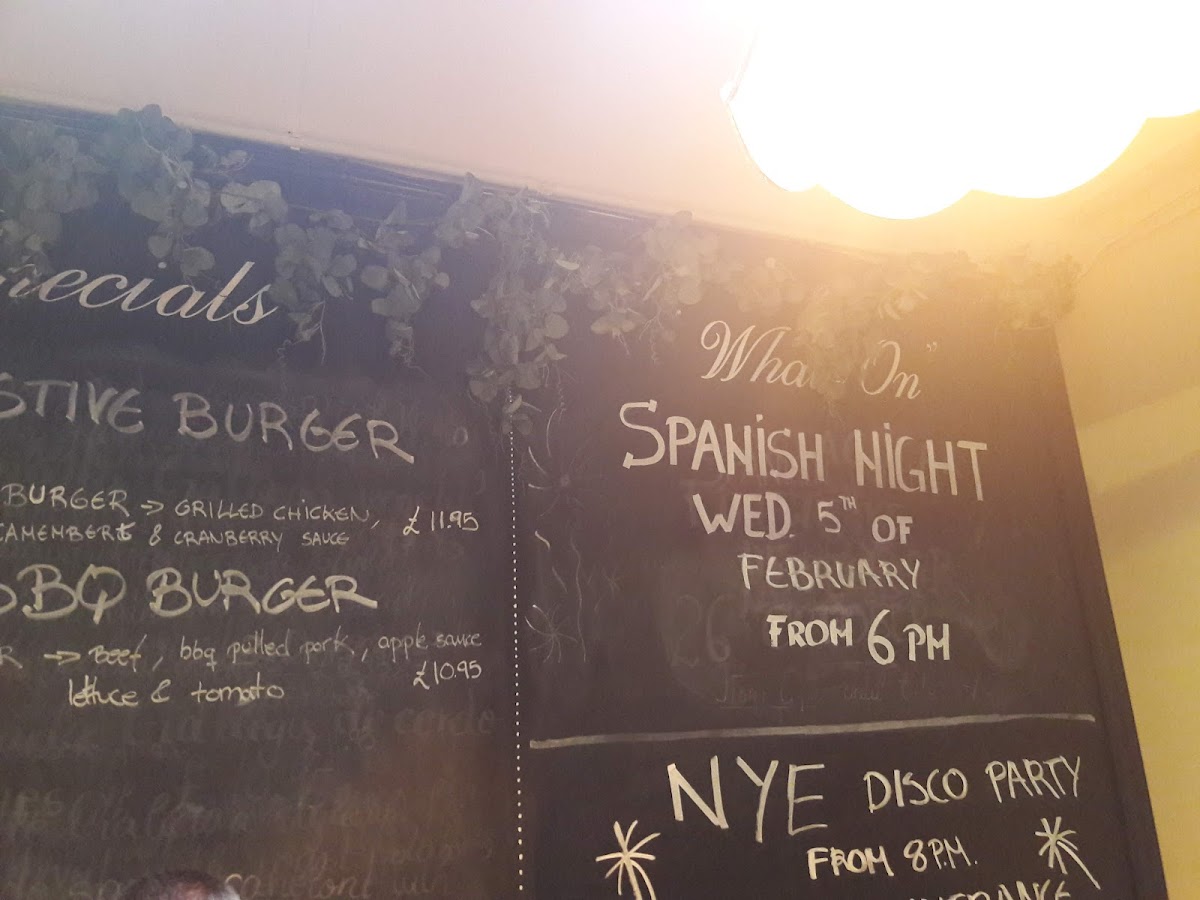 ecials
STIVE BURGER
BURGER → GRILLED CHICKEN, £11.95
CAMEMBERT & CRANBERRY SAUCE
BBQ BURGER
R → Beef, bbq pulled pork, apple sauce
£10.95
lettuce & tomato
What On"
SPANiSH NiGHT
WED. 5TH OF
FEBRUARY
FROM 6 PM
NYE DISCO PARTY
FROM 8 P.M.